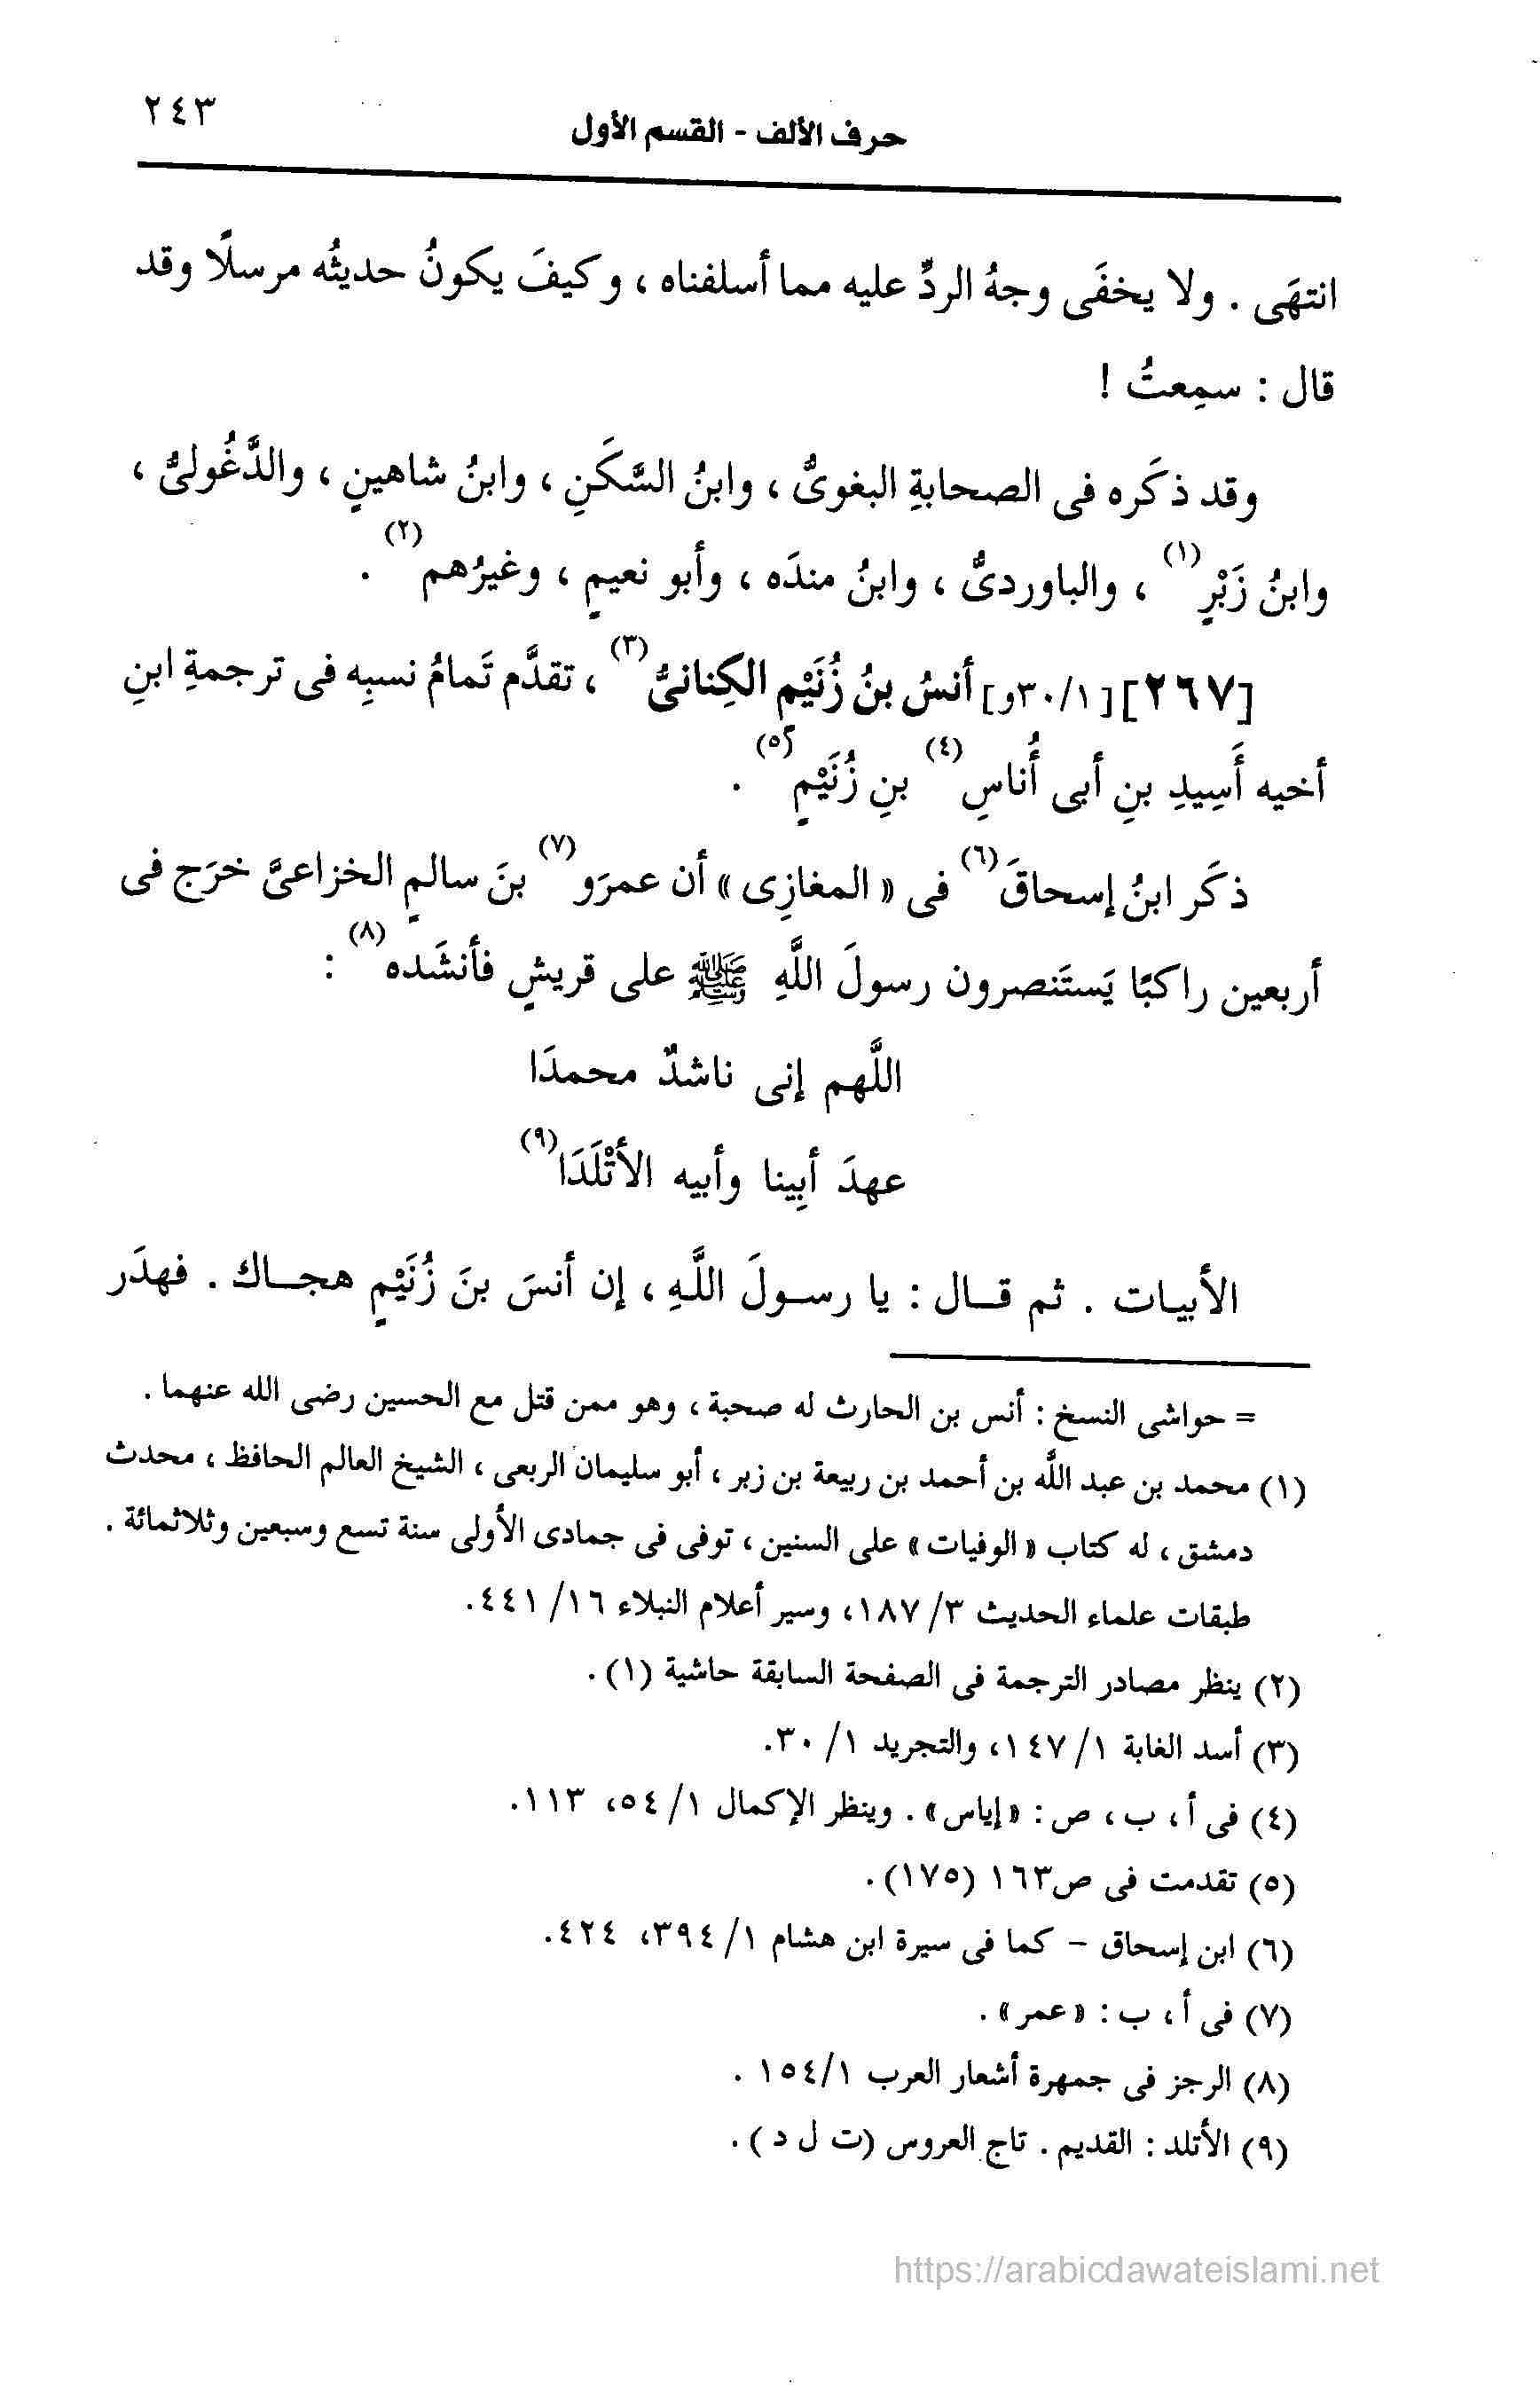 ٢٤٣
حرف الألف - القسم الأول
انتهَى . ولا يخفَى وجهُ الردِّ عليه مما أسلفناه ، وكيفَ يكونُ حديثُه مرسلًا وقد
قال : سمِعتُ !
وقد ذكَره فى الصحابةِ البغوىُّ ، وابنُ السَّكَنِ ، وابنُ شاهينٍ ، والدَّغُولىُّ ،
وابنُ زَبْرٍ(١) ، والباوردىُّ ، وابنُ مندَه ، وأبو نعيمٍ ، وغيرُهم(٢) .
[٢٦٧] [٣٠/١و] أنسُ بنُ زُنَيْمٍ الكِنانىُّ(٣) ، تقدَّم تَمامُ نسبِه فى ترجمةِ ابنِ
أخيه أَسِيدِ بنِ أبى أُناسِ(٤) بنِ زُنَيْمٍ(٥) .
ذكَر ابنُ إسحاقَ(٦) فى « المغازِى » أن عمرَو(٧) بنَ سالمٍ الخزاعىَّ خرَج فى
أربعين راكبًا يَستَنصرون رسولَ اللَّهِ ﷺ على قريشٍ فأنشَده(٨) :
اللَّهم إنى ناشدٌ محمدَا
عهدَ أبِينا وأبيه الأتْلَدَا(٩)
الأبيـات . ثم قـال : يا رسـولَ اللَّهِ ، إن أنسَ بنَ زُنَيْمٍ هجـاك . فهدَر
= حواشى النسخ : أنس بن الحارث له صحبة ، وهو ممن قتل مع الحسين رضى الله عنهما .
(١) محمد بن عبد اللَّه بن أحمد بن ربيعة بن زبر ، أبو سليمان الربعى ، الشيخ العالم الحافظ ، محدث
دمشق ، له كتاب « الوفيات » على السنين ، توفى فى جمادى الأولى سنة تسع وسبعين وثلاثمائة .
طبقات علماء الحديث ٣/ ١٨٧، وسير أعلام النبلاء ١٦/ ٤٤١.
(٢) ينظر مصادر الترجمة فى الصفحة السابقة حاشية (١).
(٣) أسد الغابة ١/ ١٤٧، والتجريد ١/ ٣٠.
(٤) فى أ ، ب ، ص : « إياس » . وينظر الإكمال ١/ ٥٤، ١١٣.
(٥) تقدمت فى ص١٦٣ (١٧٥).
(٦) ابن إسحاق - كما فى سيرة ابن هشام ١/ ٣٩٤، ٤٢٤.
(٧) فى أ ، ب : « عمر » .
(٨) الرجز فى جمهرة أشعار العرب ١٥٤/١ .
(٩) الأتلد : القديم . تاج العروس (ت ل د ) .
https://arabicdawateislami.net